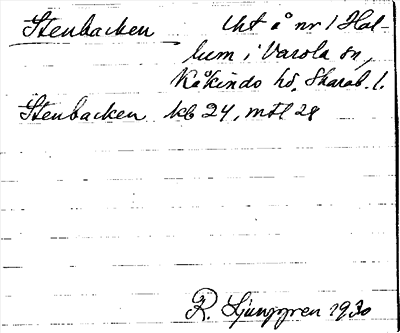 Stenbacken Uht å nr 1 Hal-
lum i Varola sn,
Kåkinds hd, Skarab. l.
Stenbacken kb 24, mtl 28
R. Ljunggren 1930